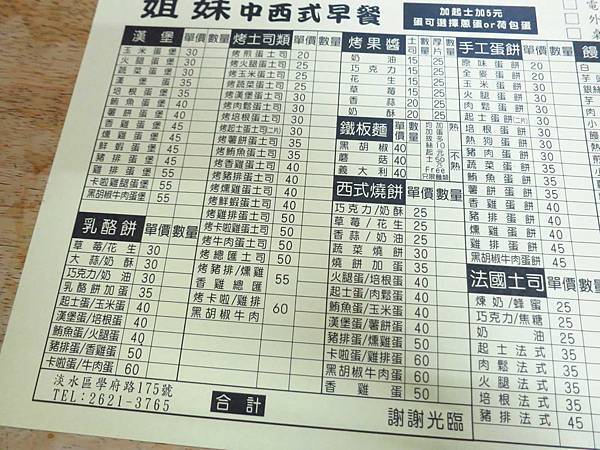 姐妹中西式早餐
加起士加5元
蛋可選擇蔥蛋or荷包蛋
漢堡 單價 數量
玉米蛋堡 30
火腿蛋堡 30
蔬菜蛋堡 30
漢堡蛋堡 35
培根蛋堡 35
鮪魚蛋堡 40
薯餅蛋堡 45
香雞蛋堡 45
燻雞蛋堡 45
鮮蝦蛋堡 45
豬排蛋堡 45
雞排蛋堡 55
卡啦雞腿蛋堡 55
黑胡椒牛肉蛋堡 55
乳酪餅 單價 數量
草莓/花生 30
大蒜/奶酥 30
巧克力/奶油 30
乳酪餅加蛋 35
起士蛋/玉米蛋 40
漢堡蛋/培根蛋 40
鮪魚蛋/火腿蛋 40
豬排蛋/香雞蛋 50
卡啦蛋/牛肉蛋 60
淡水區學府路175號
TEL:2621-3765
烤土司類 單價 數量
烤煎蛋土司 20
烤火腿蛋土司 25
烤玉米蛋土司 25
烤漢堡蛋土司 30
烤培根蛋土司 30
烤肉鬆蛋土司 30
烤起士蛋土司(二片) 30
烤薯餅蛋土司 35
烤鮪魚蛋土司 35
烤香雞蛋土司 40
烤豬排蛋土司 40
烤燻雞蛋土司 40
烤鮮蝦蛋土司 40
烤雞排蛋土司 50
烤卡啦雞蛋土司 50
烤牛肉蛋土司 50
烤總匯土司 50
烤豬排/燻雞
香雞總匯 55
烤卡啦/雞排
黑胡椒牛肉 60
合計
烤果醬 土司 數量 厚片 數量
奶油 15 25
巧克力 15 25
花生 15 25
草莓 15 25
香蒜 20 25
奶酥 20 25
鐵板麵 單價 數量
黑胡椒 40
蘑菇 40
義大利 40
西式燒餅 單價 數量
巧克力/奶酥 25
草莓/花生 25
香蒜/奶油 25
蔬菜燒餅 30
燒餅加蛋 30
火腿蛋/培根蛋 40
起士蛋/肉鬆蛋 40
鮪魚蛋/玉米蛋 40
漢堡蛋/薯餅蛋 40
豬排蛋/燻雞蛋 50
卡啦蛋/雞排蛋 60
黑胡椒牛肉蛋 60
香雞蛋 50
謝謝光臨
手工蛋餅 單價 數量
原味蛋餅 20
全麥蛋餅 20
玉米蛋餅 30
火腿蛋餅 30
肉鬆蛋餅 30
起士蛋餅(二片) 30
培根蛋餅 30
熱狗蛋餅 30
漢堡蛋餅 30
蔬菜蛋餅 30
薯餅蛋餅 35
鮪魚蛋餅 35
香雞蛋餅 40
豬排蛋餅 40
燻雞蛋餅 40
雞排蛋餅 45
黑胡椒牛肉蛋餅 45
法國土司 單價
煉奶/蜂蜜 25
巧克力/焦糖 25
奶油 25
起士法式 35
肉鬆法式 35
火腿法式 35
培根法式 35
豬排法式 45